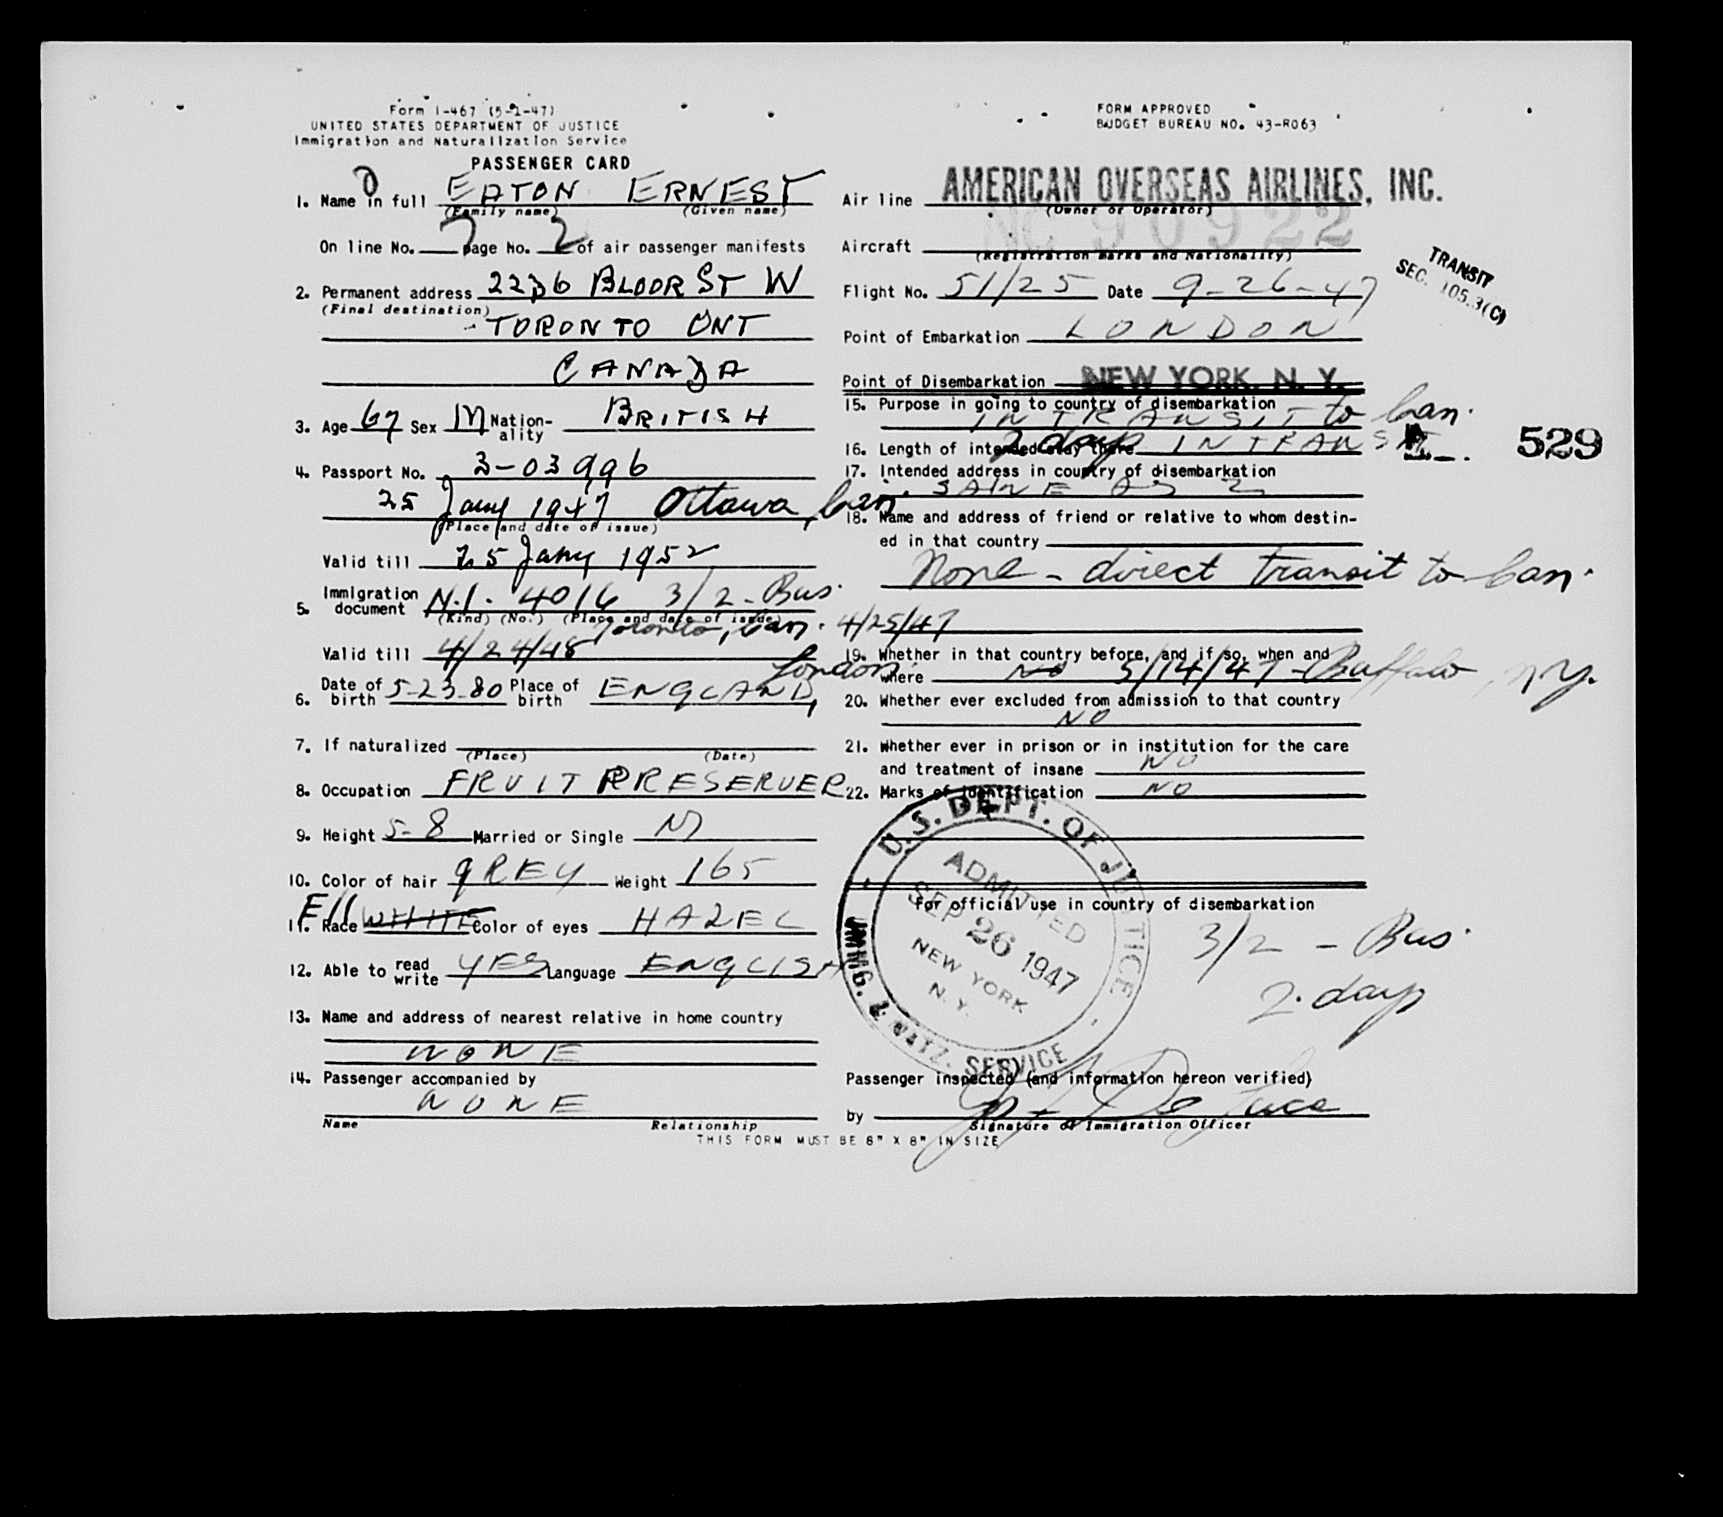 Form I-467 (5-2-47)
UNITED STATES DEPARTMENT OF JUSTICE
Immigration and Naturalization Service
PASSENGER CARD
1. Name in full EATON ERNEST
(Family name) (Given name)
On line No. 7 page No. 2 of air passenger manifests
2. Permanent address 2236 BLOOR ST W
(Final destination)
TORONTO ONT
CANADA
3. Age 67 Sex M Nation-ality BRITISH
4. Passport No. 3-03996
25 Jany 1947 Ottawa, Can.
(Place and date of issue)
Valid till 25 Jany 1952
5. Immigration document N.I. 4016 3/2 - Bus.
(Kind) (No.) (Place and date of issue)
Toronto, Can. 4/25/47
Valid till 4/24/48
London
6. Date of birth 5-23-80 Place of birth ENGLAND,
7. If naturalized
(Place) (Date)
8. Occupation FRUIT PRESERVER
9. Height 5-8 Married or Single M
10. Color of hair GREY Weight 165
11. Race WHITE Color of eyes HAZEL
12. Able to read write YES Language ENGLISH
13. Name and address of nearest relative in home country
NONE
14. Passenger accompanied by
NONE
Name Relationship
THIS FORM MUST BE 8" X 8" IN SIZE
FORM APPROVED
BUDGET BUREAU NO. 43-R063
Air line AMERICAN OVERSEAS AIRLINES, INC.
(Owner or Operator)
Aircraft NC 90922
(Registration marks and Nationality)
Flight No. 51/25 Date 9-26-47
TRANSIT
SEC. 105.3(C)
Point of Embarkation LONDON
Point of Disembarkation NEW YORK, N. Y.
15. Purpose in going to country of disembarkation
IN TRANSIT to Can.
16. Length of intended stay there 2 days IN TRANSIT
529
17. Intended address in country of disembarkation
SAME AS 2
18. Name and address of friend or relative to whom destin-
ed in that country
None - direct transit to Can.
19. Whether in that country before, and if so, when and
where NO 3/14/47 - Buffalo, N.Y.
20. Whether ever excluded from admission to that country
NO
21. Whether ever in prison or in institution for the care
and treatment of insane NO
22. Marks of identification NO
U.S. DEPT. OF JUSTICE
ADMITTED
SEP 26 1947
NEW YORK
N. Y.
IMMG. & NATZ. SERVICE
For official use in country of disembarkation
3/2 - Bus.
2. days
Passenger inspected (and information hereon verified)
by
Signature of Immigration Officer